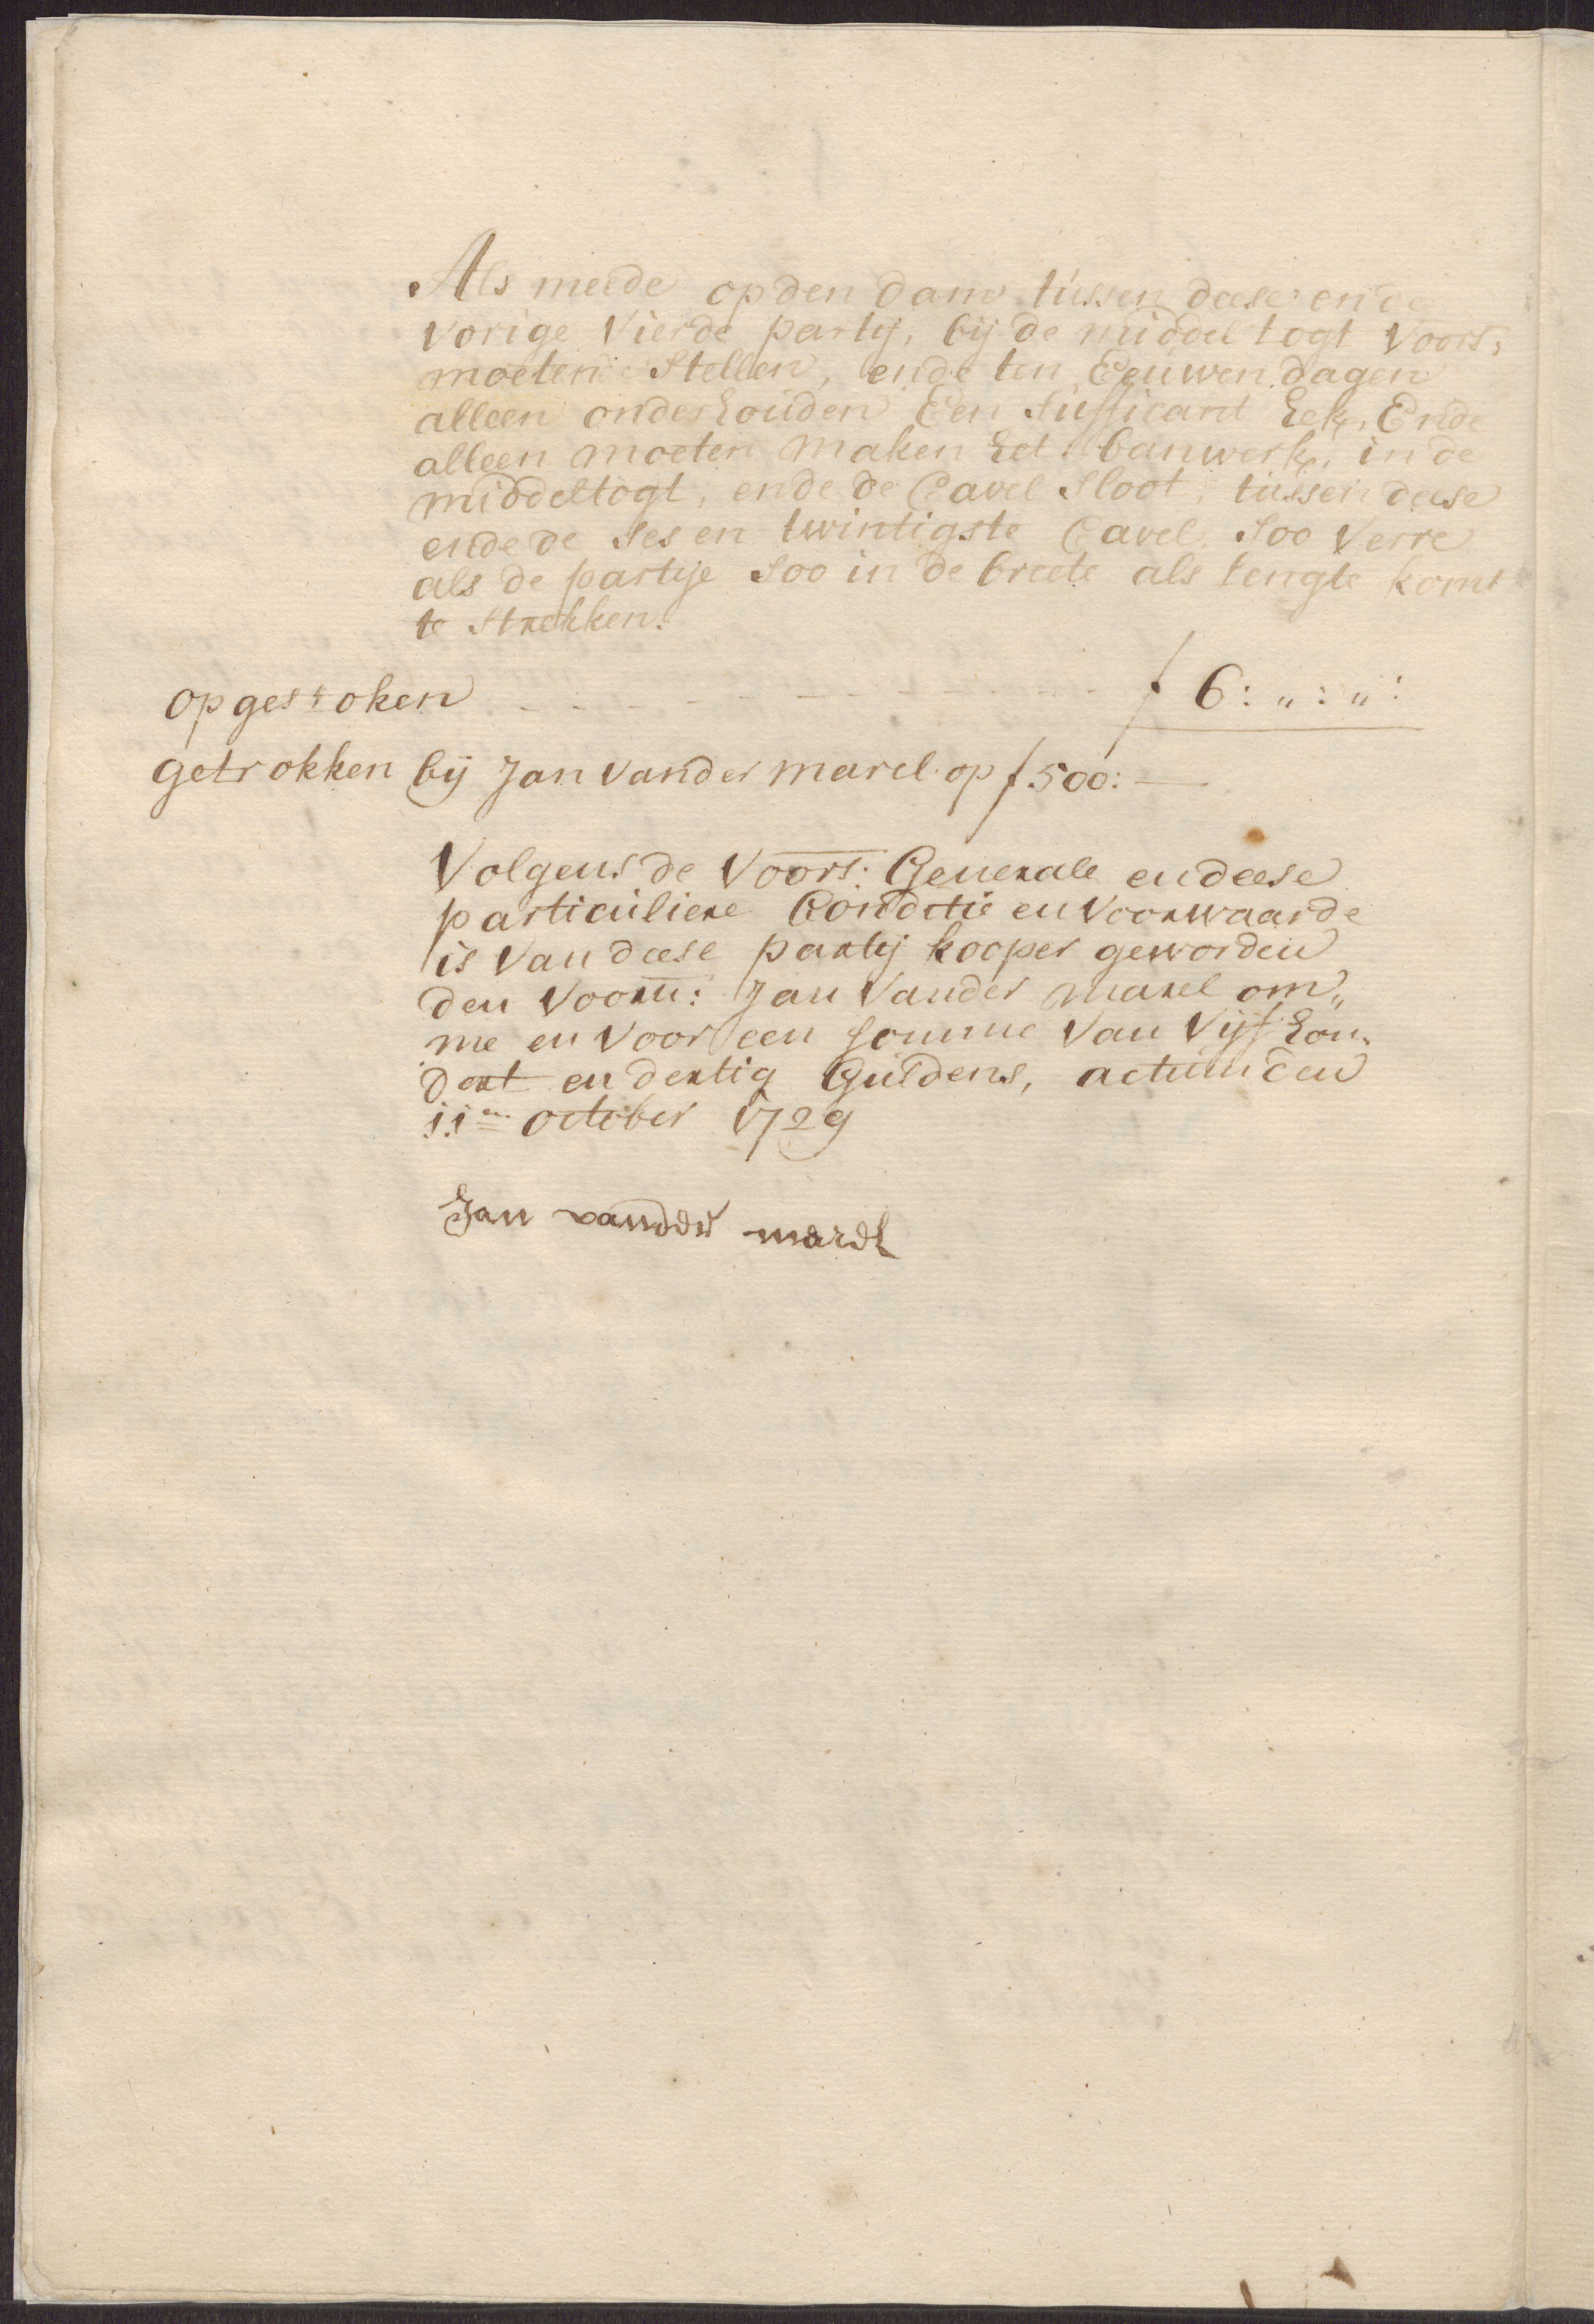 Als meede op den dam tussen deese ende
vorige vierde partij, bij de middel togt voors,
moeten stellen, ende ten Eeuwen dagen
alleen onderhouden Een suffisant hek, Ende
alleen moeten maken het banwerk, in de
middeltogt, ende de Cavel sloot, tussen deese
ende de ses en twintigste Cavel soo verre
als de partije soo in de breete als lengte komt
te strekken.
opgestoken - - - - - - - - - - f 6: „ : „ :
getrokken bij Jan vander marel op f 500: —
Volgens de voors: Generale en deese
particuliere Conditie en voorwaarde
is van deese partij kooper geworden
den voorn: Jan vander marel om„
me en voor een somme van vijf hon„
dert en dertig Guldens, actum den
11en october 1729
Jan vander marel